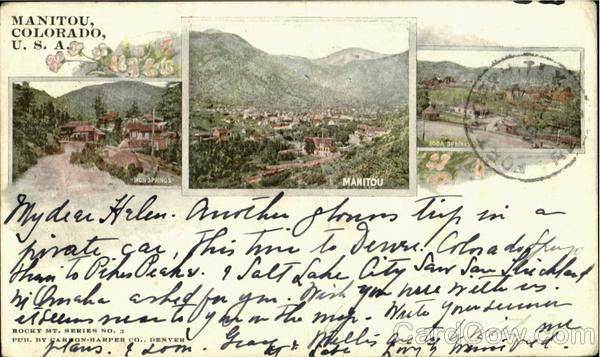 MANITOU,
COLORADO,
U. S. A.
IRON SPRINGS
MANITOU
SODA SPRINGS
My dear Helen. Another glorious trip in a
private car, this time to Denver. Colorado Springs
to Pikes Peak & Salt Lake City. Saw San
in Omaha asked for you. Wish you were with us.
near to you on the map. Write your summer
plans. & soon.
ROCKY MT. SERIES NO. 3
PUB. BY CARSON-HARPER CO., DENVER
CardCow.com